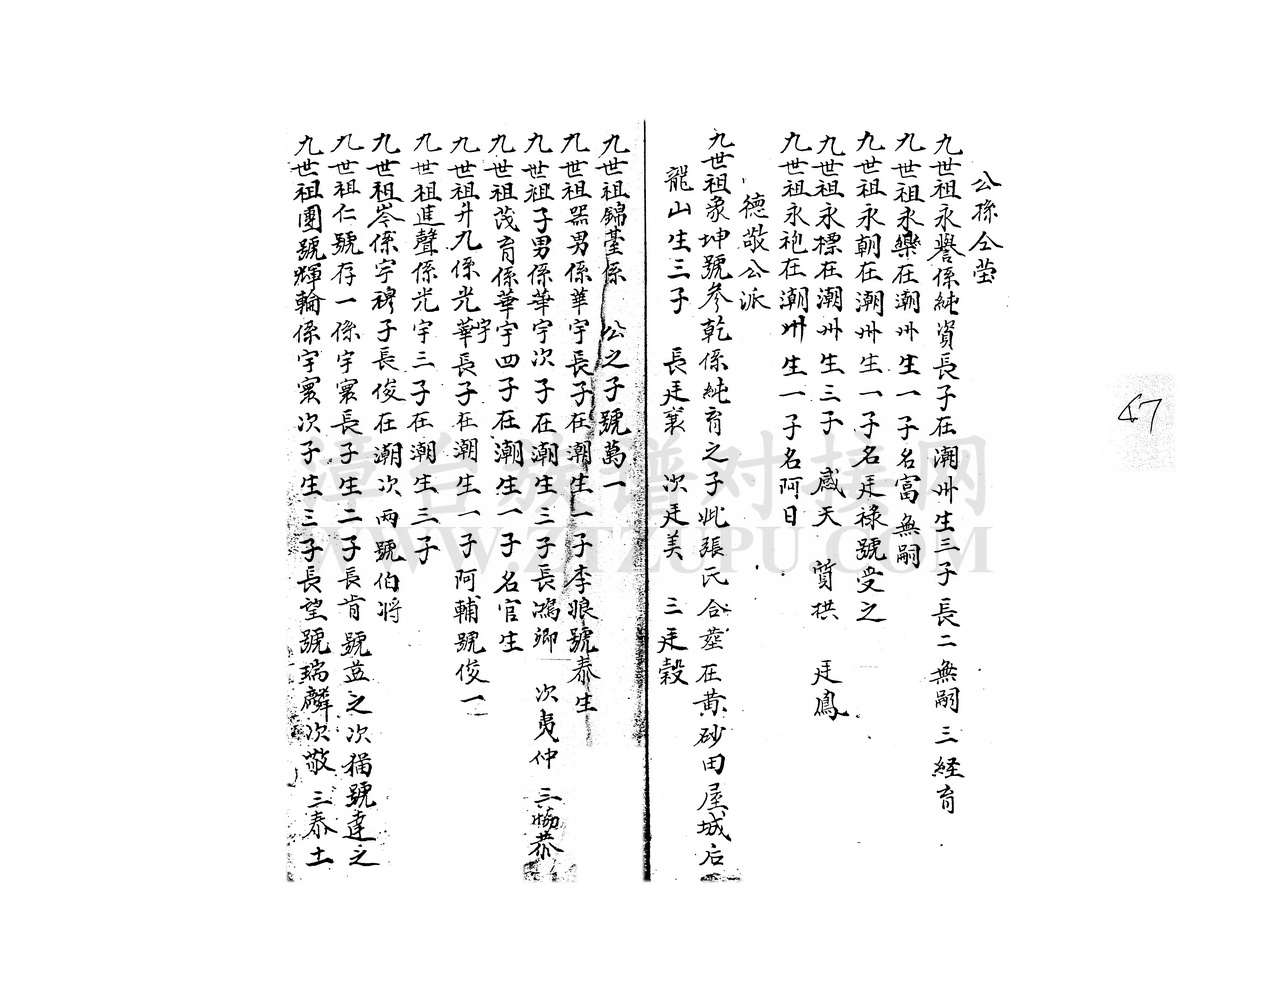 公孫仝塋
九世祖永譽係純資長子在潮州生三子長二無嗣三経育
九世祖永樂在潮州生一子名富無嗣
九世祖永朝在潮州生一子名廷祿號受之
九世祖永標在潮州生三子 感天 質拱 廷鳳
九世祖永袍在潮州生一子名阿日
德敬公派
九世祖象坤號參乾係純育之子妣張氏合塟在黄砂田屋城后
龍山生三子 長廷襄 次廷美 三廷穀
九世祖錦臺係 公之子號萬一
九世祖器男係華宇長子在潮生一子李娘號泰生
九世祖子男係華宇次子在潮生三子長鴻卿 次夷仲 三 恭
九世祖茂育係華宇四子在潮生一子名官生
九世祖升九係光華宇長子在潮生一子阿輔號俊一
九世祖進聲係光宇三子在潮生三子
九世祖岑係宇穆子長俊在潮次两號伯将
九世祖仁號存一係宇寰長子生二子長肯號益之次猫號達之
九世祖團號輝輪係宇寰次子生三子長望號瑞麟次敬三泰土
47
漳台族谱对接网
WWW.ZTZUPU.COM